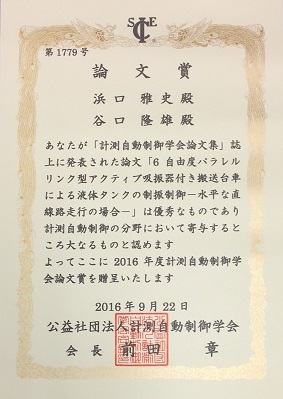 SICE
第1779号
論文賞
浜口 雅史殿
谷口 隆雄殿
あなたが「計測自動制御学会論文集」誌
上に発表された論文「6自由度パラレル
リンク型アクティブ吸振器付き搬送台車
による液体タンクの制振制御―水平な直
線路走行の場合―」は優秀なものであり
計測自動制御の分野において寄与すると
ころ大なるものと認めます
よってここに2016年度計測自動制御学
会論文賞を贈呈いたします
2016年9月22日
公益社団法人計測自動制御学会
会長 前田 章